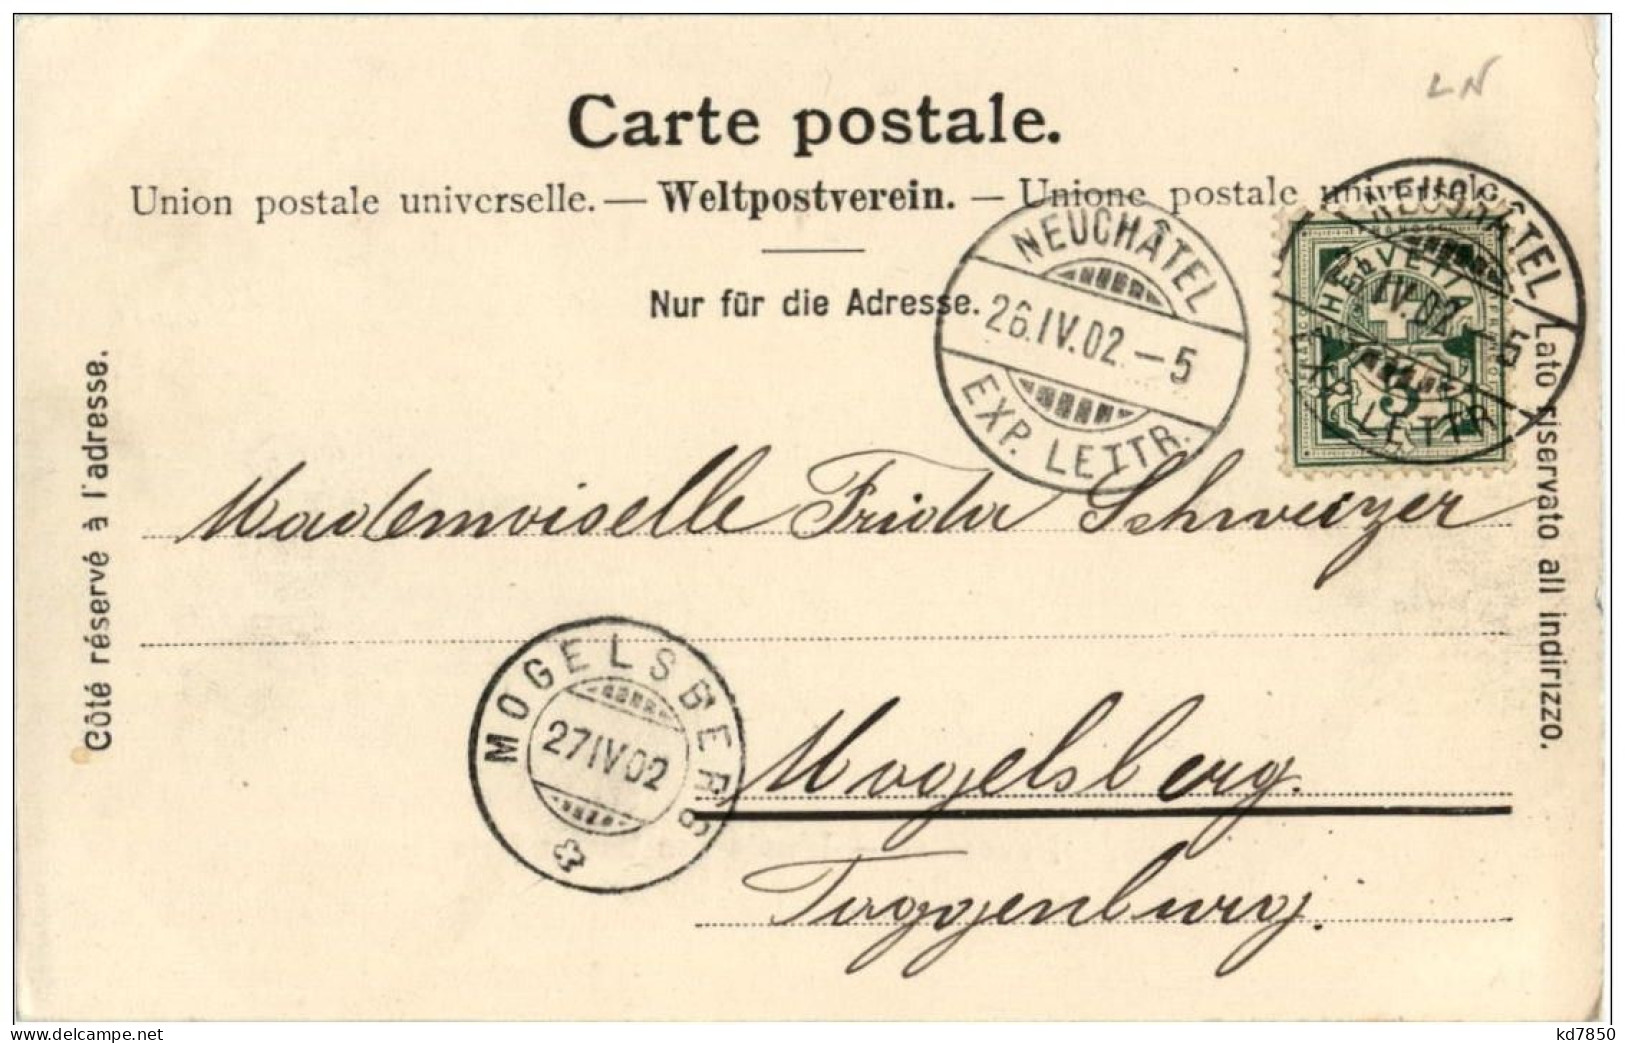 LN
Carte postale.
Union postale universelle. — Weltpostverein. — Unione postale universale
Nur für die Adresse.
NEUCHÂTEL
26.IV.02.–5
EXP. LETTR.
NEUCHÂTEL
IV.02.–5
EXP. LETTR.
HELVETIA
FRANCO
5
Côté réservé à l'adresse.
Lato riservato all indirizzo.
Mademoiselle Frida Schweizer
MOGELSBERG
27 IV 02
Mogelsberg.
Toggenburg.
www.delcampe.net
kd7850